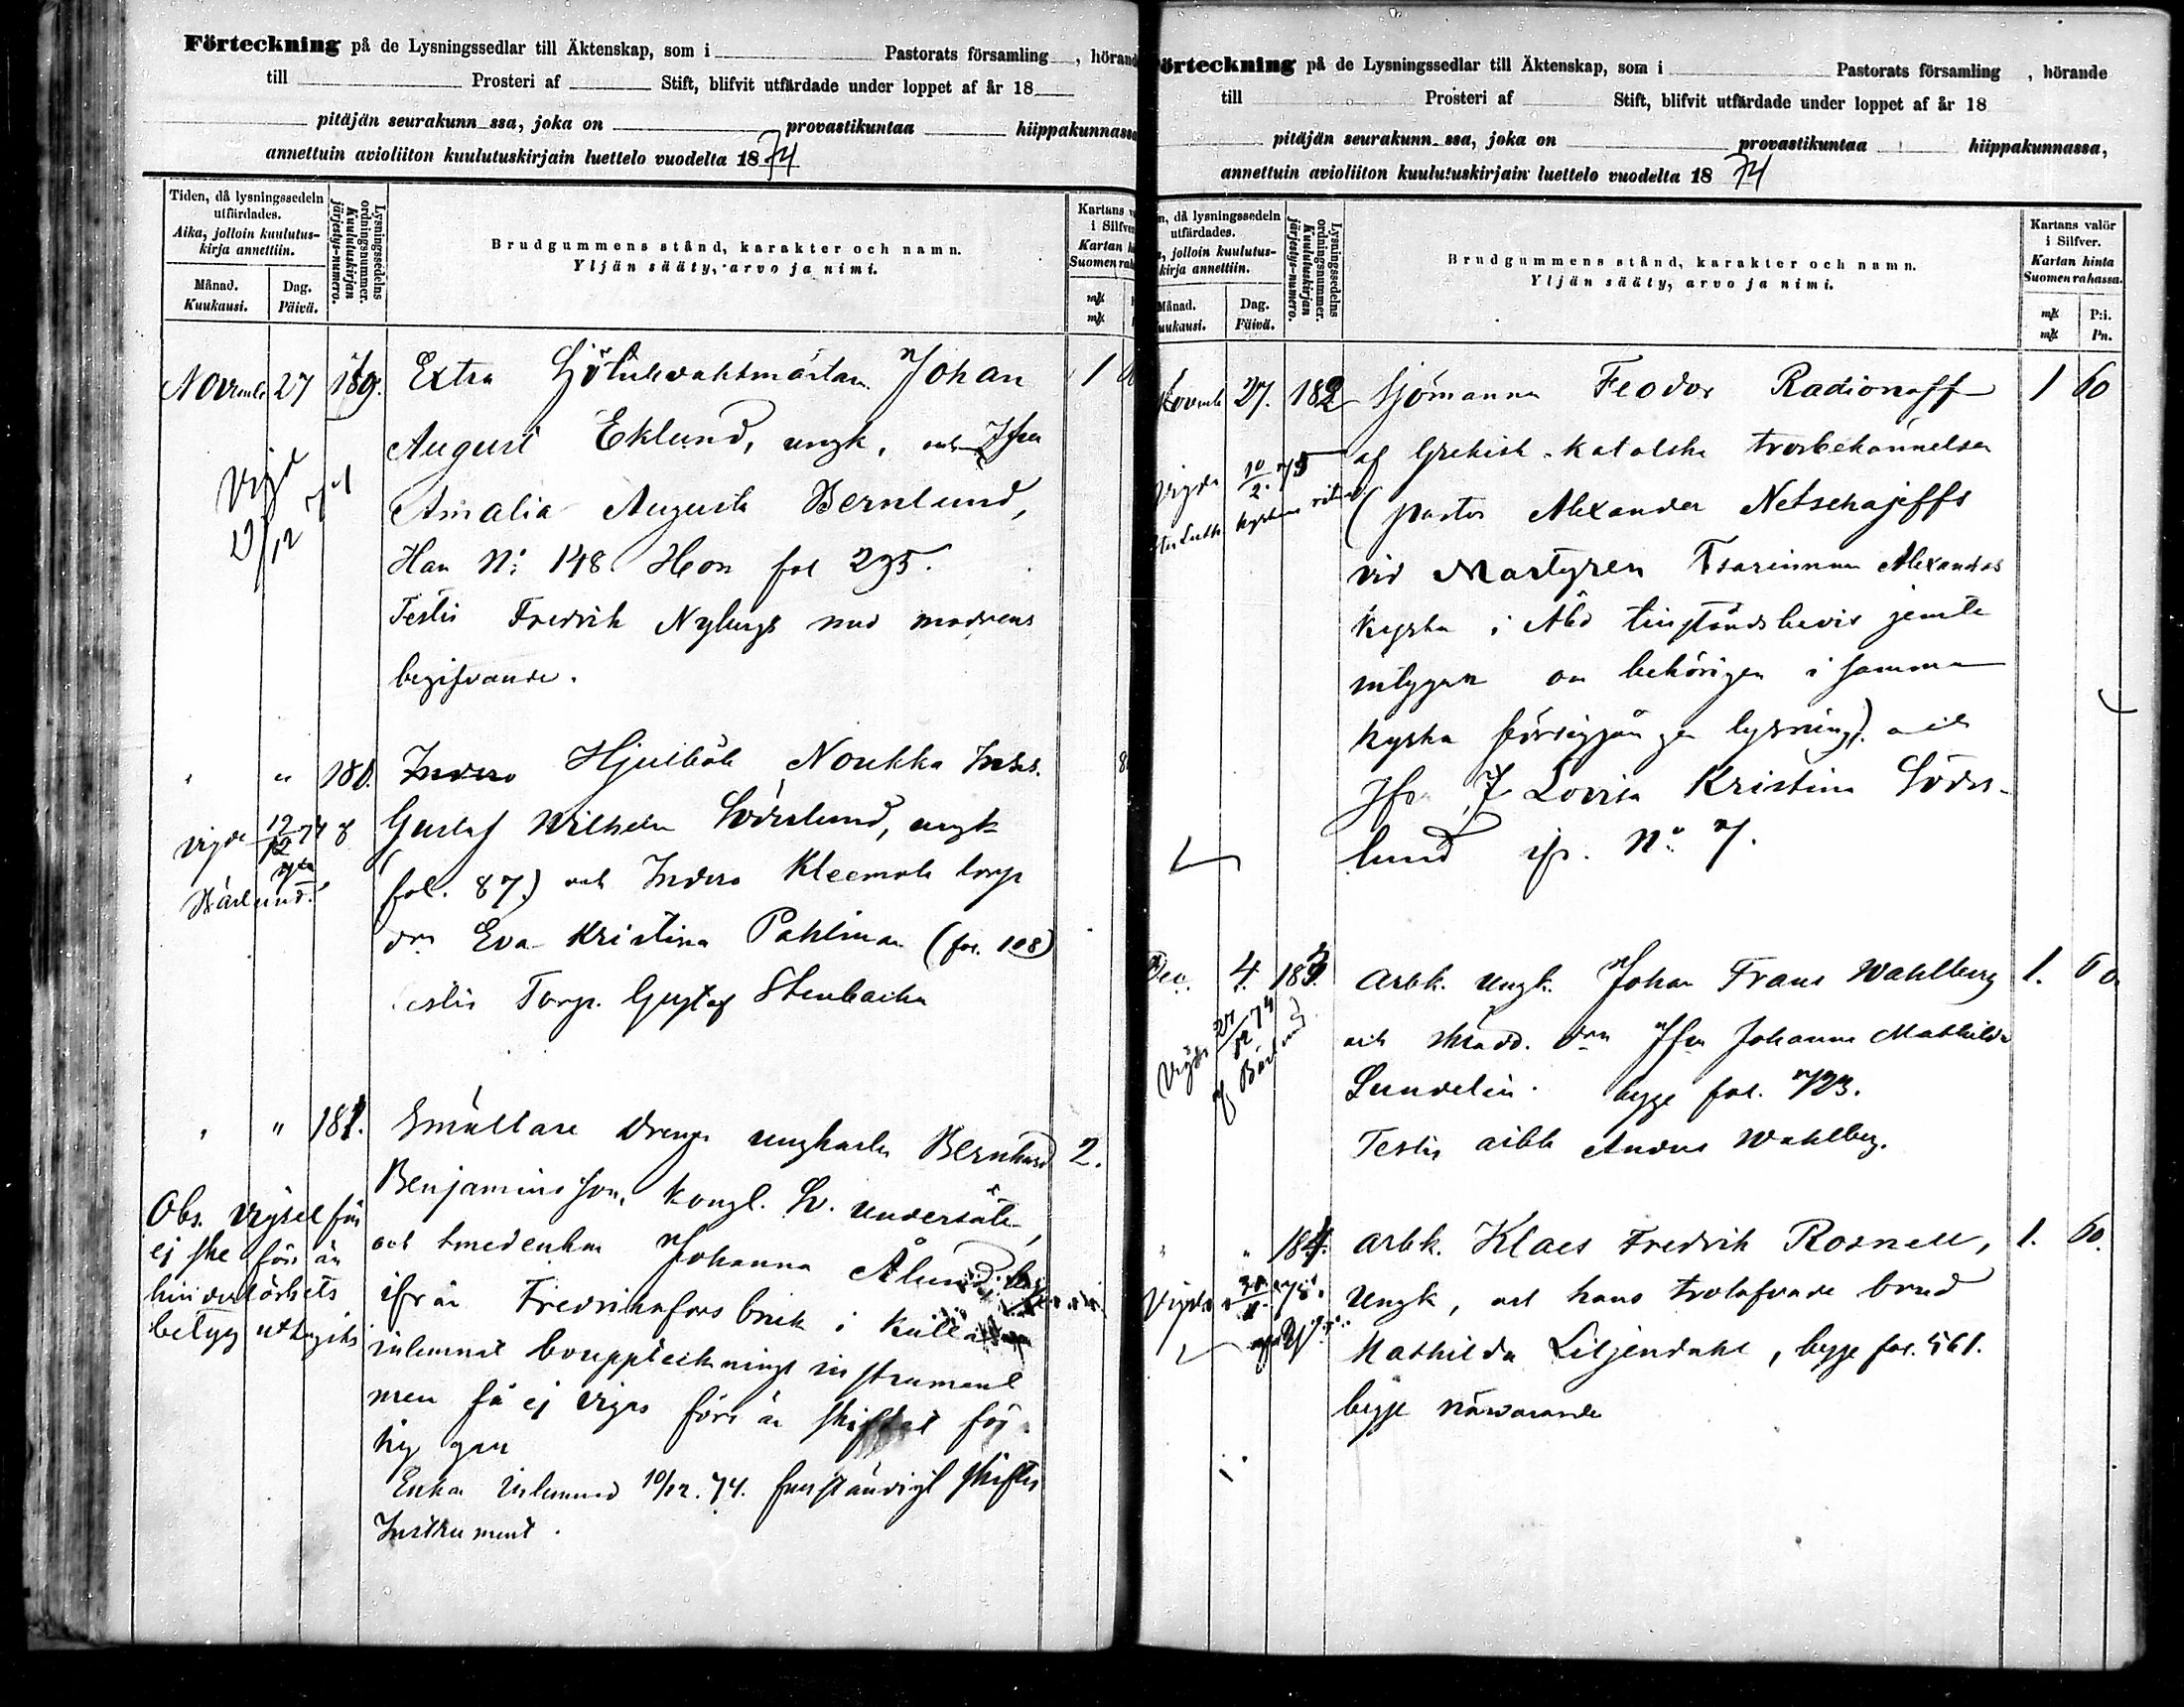 Förteckning på de Lysningssedlar till Äktenskap, som i Pastorats församling, hörand
till Prosteri af Stift, blifvit utfärdade under loppet af år 18
pitäjän seurakunn ssa, joka on provastikuntaa hiippakunnassa
annettuin avioliiton kuulutuskirjain luettelo vuodelta 1874
Tiden, då lysningssedeln utfärdades.
Aika, jolloin kuulutuskirja annettiin.
Månad.
Kuukausi.
Dag.
Päivä.
Lysningssedelns ordningsnummer.
Kuulutuskirjan järjestys-numero.
Brudgummens stånd, karakter och namn.
Yljän sääty, arvo ja nimi.
Kartans v
i Silfver
Kartan h
Suomen rah
mk
mk
27 Extra Johan 1
August Eklund, ungk, och Jfru
Amalia Augusta Bernlund,
Han No: 148. Hon fol 235.
Testis Fredrik Nybergs med modrens
begifvande.
" 180. Hjulböle Noukka Inhs.
Gustaf Wilhelm Söderlund, ungk
fol. 87.) och Kleemola torp
dr Eva Kristina Pahlman (fol. 108)
Torp. Gustaf Stenbacka
vigde 12/12 74
" 181. Smältare Drengen ungkarlen Bernhard 2.
Benjaminsson, kongl. Sv. undersåte,
och smedenkan Johanna Ålund
ifrån Fredriksfors bruk i
inlemnat bouppteckningsinstrument
men få ej vigas förr än skiftet för
sig gått
Enkan inlemnad 10/12.74. fullständigt skiftes
Instrument.
Obs. Vigsel får
ej ske förr än
hinderlöshets
betyg
Förteckning på de Lysningssedlar till Äktenskap, som i Pastorats församling, hörande
till Prosteri af Stift, blifvit utfärdade under loppet af år 18
pitäjän seurakunn ssa, joka on provastikuntaa hiippakunnassa,
annettuin avioliiton kuulutuskirjain luettelo vuodelta 1874
n, då lysningssedeln utfärdades.
, jolloin kuulutuskirja annettiin.
Månad.
uukausi.
Dag.
Päivä.
Lysningssedelns ordningsnummer.
Kuulutuskirjan järjestys-numero.
Brudgummens stånd, karakter och namn.
Yljän sääty, arvo ja nimi.
Kartans valör i Silfver.
Kartan hinta Suomen rahassa.
mk P:i.
mk Pn.
27. 182 Sjömannen Feodor Radionoff 1 60
af Grekisk-katolska trosbekännelsen
(pastor Alexander Netschajeffs
vid Martyren Tsarinnan Alexandras
kyrka i Åbo tillståndsbevis jemte
intygan om behörigen i samma
kyrka försiggången lysning), och
Jfrn Lovisa Kristina Söder-
lund No. 7.
Vigda 10/2. 75
Dec. 4. 183. Arbk. Ungk. Johan Frans Wahlberg 1. 60.
och skradd. drn Jfrn Johanna Mathilda
Sundelin. begge fol. 723.
Testis arbk Anders Wahlberg.
Vigde 27/12 74
" 184. Arbk. Klaes Fredrik Rosnell, 1. 60.
Ungk, och hans trolofvade brud
Mathilda Liljendahl, begge fol. 561.
begge närvarande